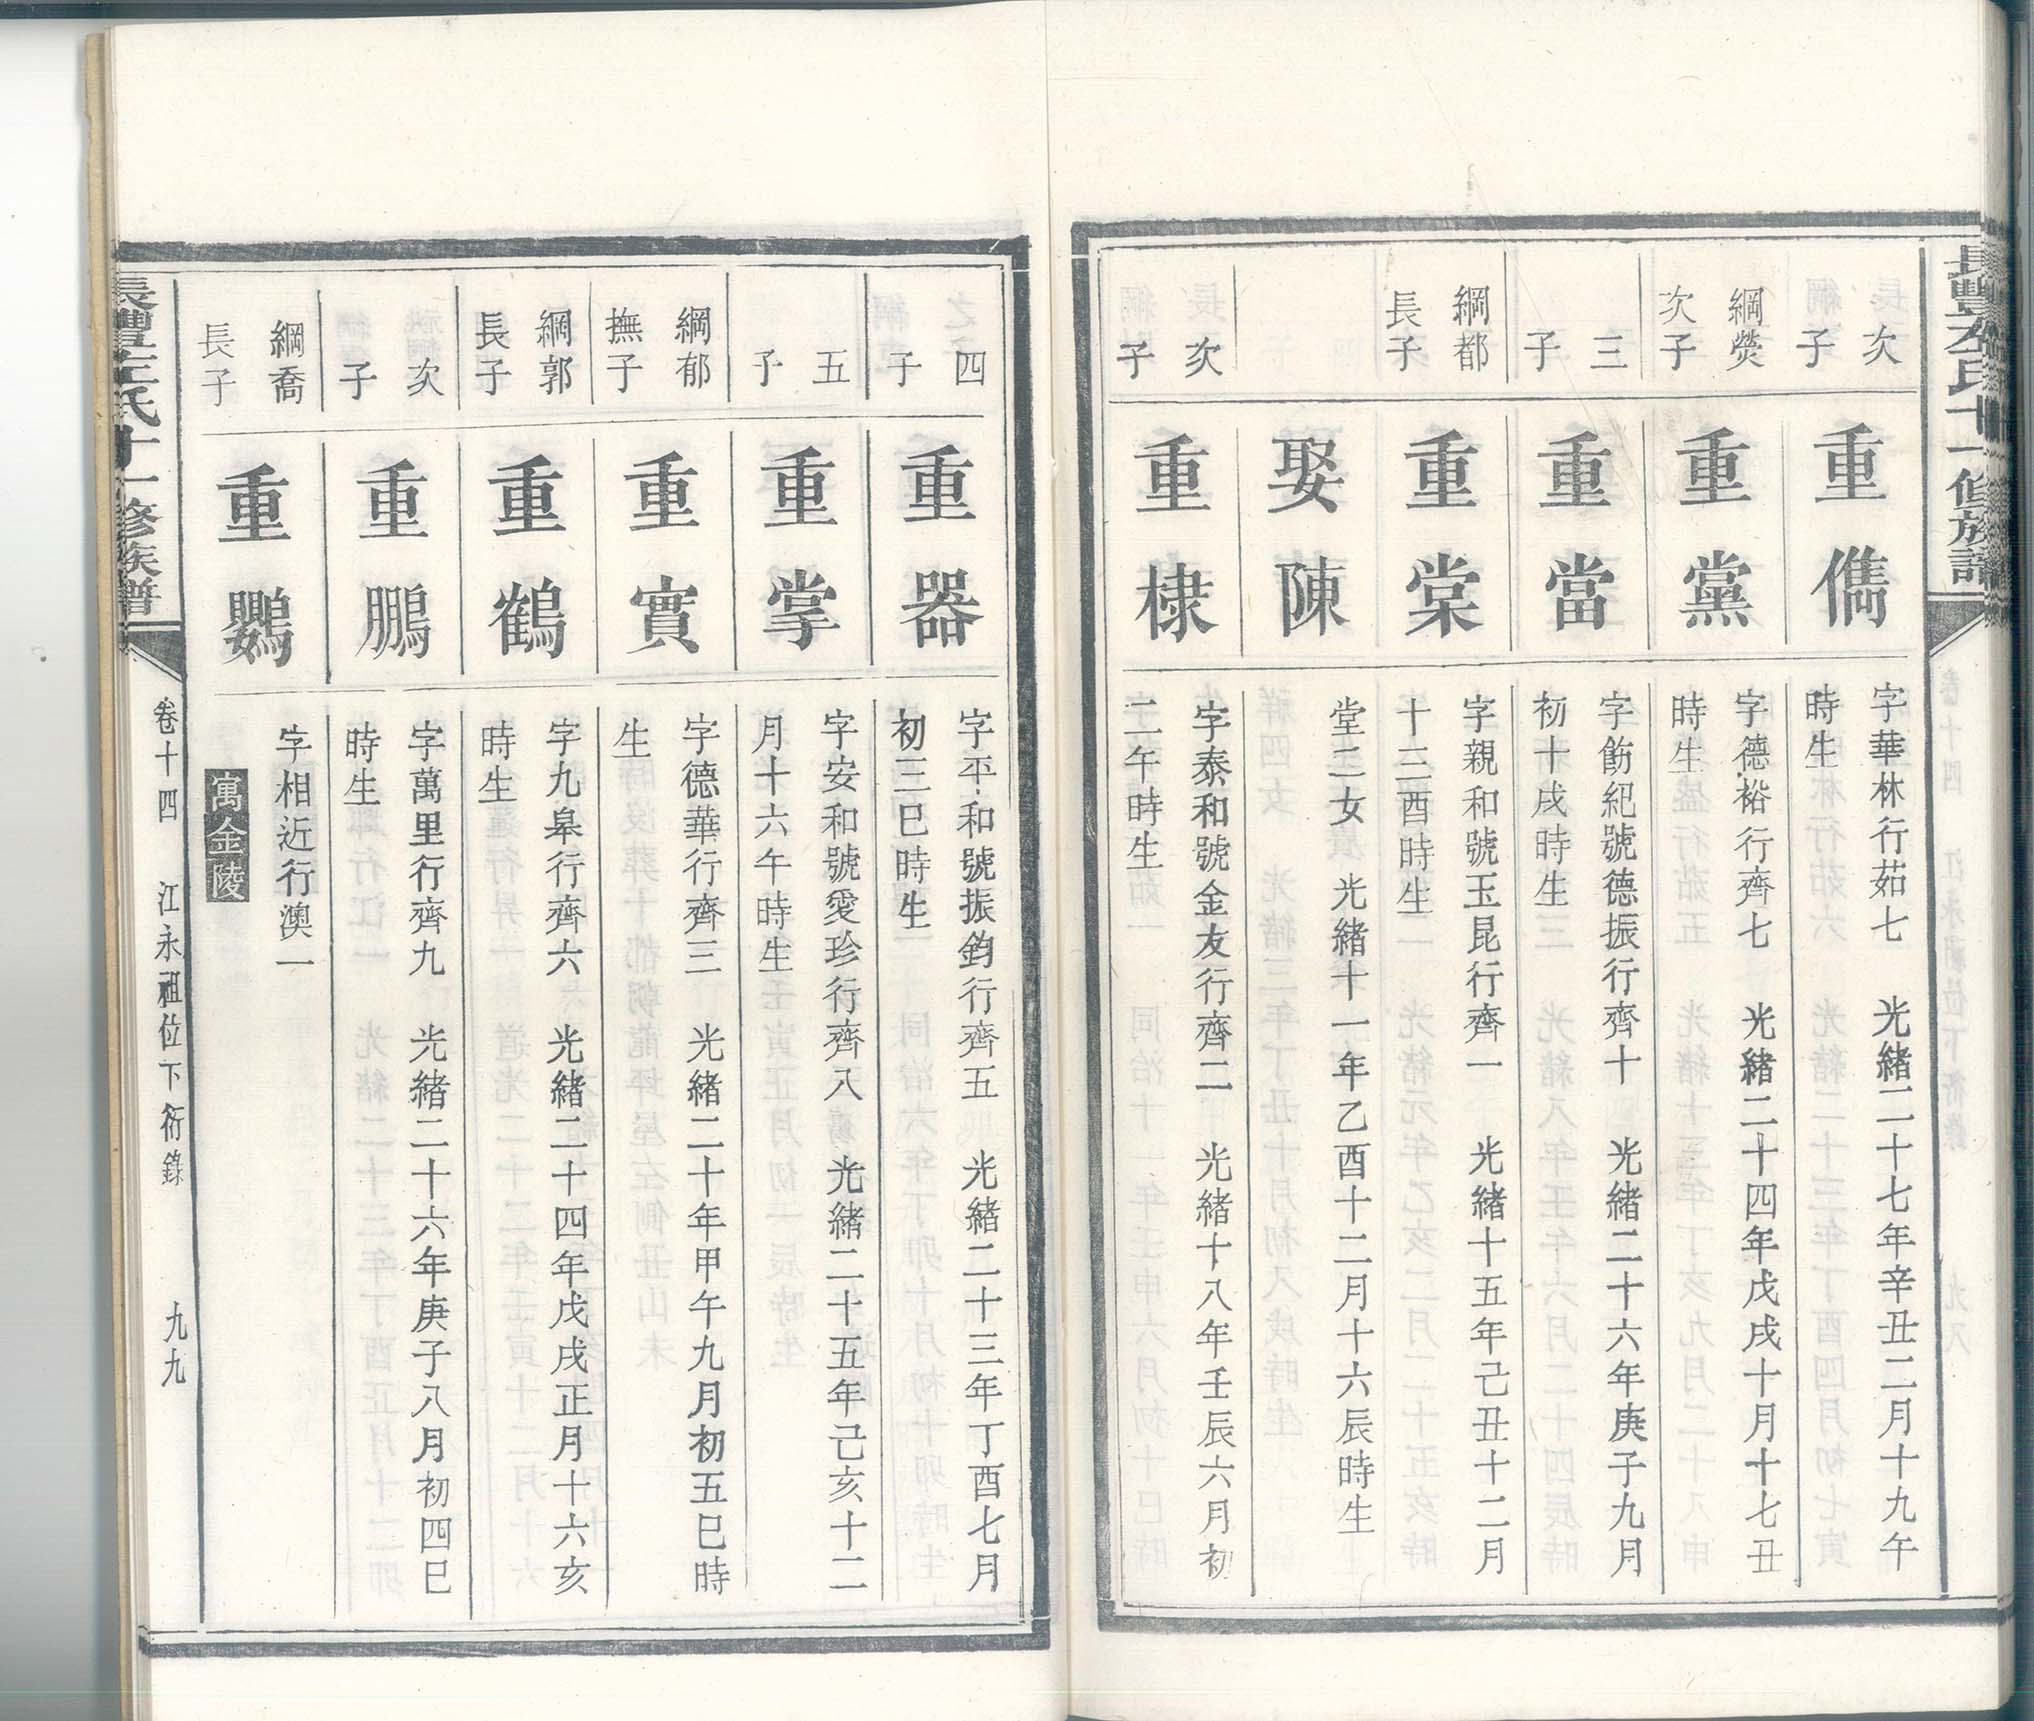 長豐左氏十一修族譜
次子
重儁
字華林行茹七　光緒二十七年辛丑二月十九午
時生
綱熒次子
重黨
字德裕行齊七　光緒二十四年戊戌十月十七丑
時生
三子
重當
字飭紀號德振行齊十　光緒二十六年庚子九月
初十戌時生
綱都長子
重棠
字親和號玉昆行齊一　光緒十五年己丑十二月
十三酉時生
娶陳
堂二女　光緒十一年乙酉十二月十六辰時生
次子
重棣
字泰和號金友行齊二　光緒十八年壬辰六月初
二午時生
四子
重器
字平和號振鈞行齊五　光緒二十三年丁酉七月
初三巳時生
五子
重掌
字安和號愛珍行齊八　光緒二十五年己亥十二
月十六午時生
綱郁撫子
重實
字德華行齊三　光緒二十年甲午九月初五巳時
生
綱郭長子
重鶴
字九皋行齊六　光緒二十四年戊戌正月十六亥
時生
次子
重鵬
字萬里行齊九　光緒二十六年庚子八月初四巳
時生
綱喬長子
重鸚
字相近行澳一
寓金陵
長豐左氏十一修族譜
卷十四　江永祖位下衍錄　九九